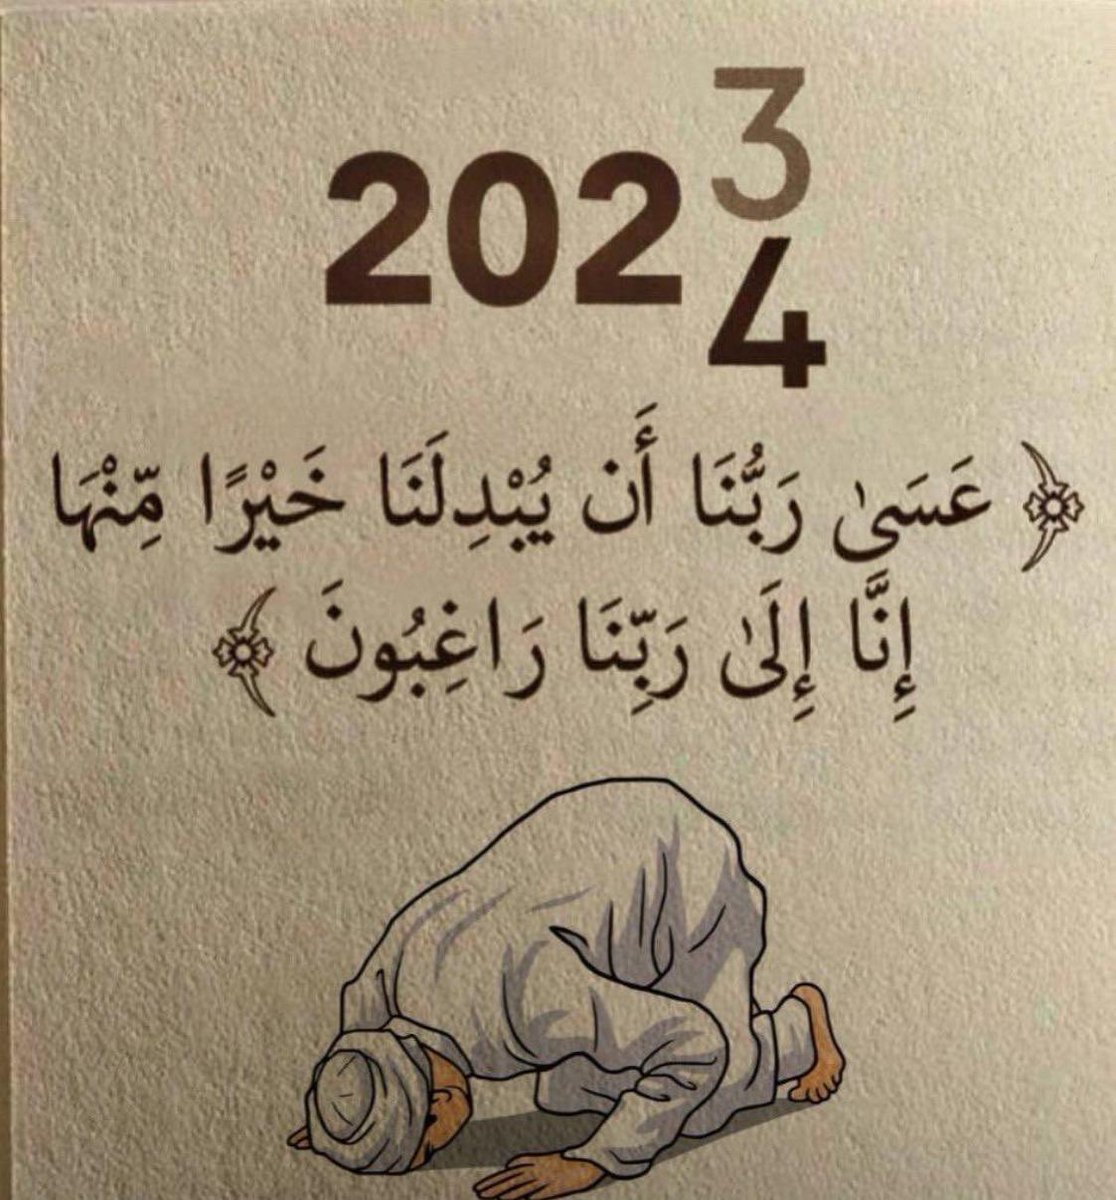 2023
4
﴿ عَسَىٰ رَبُّنَا أَن يُبْدِلَنَا خَيْرًا مِّنْهَا
إِنَّا إِلَىٰ رَبِّنَا رَاغِبُونَ ﴾